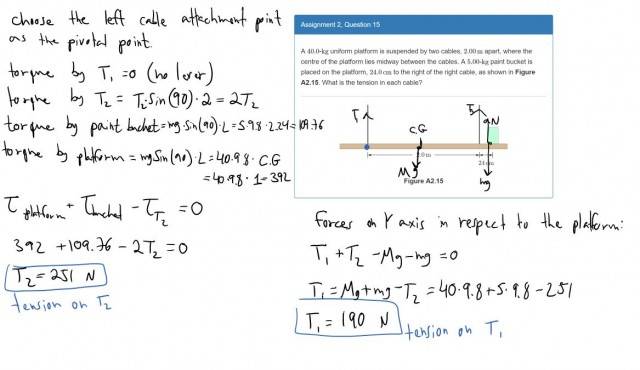 choose the left cable attachment point
as the pivotal point.
torque by T₁ = 0 (no lever)
torque by T₂ = T₂·sin(90)·2 = 2T₂
torque by paint bucket = mg·sin(90)·L = 5·9.8·2.24 = 109.76
torque by platform = mg sin(90)·L = 40·9.8·C.G
= 40·9.8·1 = 392
τ platform + τ bucket - τ T₂ = 0
392 + 109.76 - 2T₂ = 0
T₂ = 251 N
tension on T₂
Assignment 2, Question 15
A 40.0-kg uniform platform is suspended by two cables, 2.00 m apart, where the
centre of the platform lies midway between the cables. A 5.00-kg paint bucket is
placed on the platform, 24.0 cm to the right of the right cable, as shown in Figure
A2.15. What is the tension in each cable?
C.G
N
Mg
mg
Figure A2.15
Forces on Y axis in respect to the platform:
T₁ + T₂ - Mg - mg = 0
T₁ = Mg + mg - T₂ = 40·9.8 + 5·9.8 - 251
T₁ = 190 N
tension on T₁